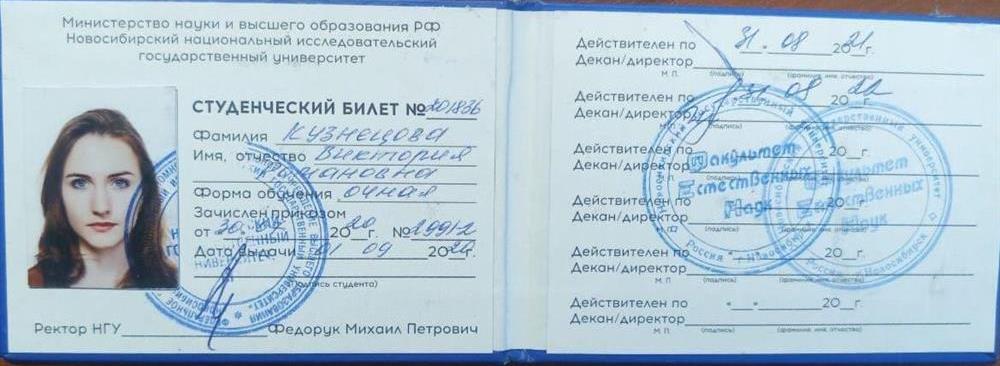 Министерство науки и высшего образования РФ
Новосибирский национальный исследовательский
государственный университет
СТУДЕНЧЕСКИЙ БИЛЕТ № 201836
Фамилия Кузнецова
Имя, отчество Виктория
Романовна
Форма обучения очная
Зачислен приказом
от 2020г. №
Дата выдачи 01 09 2020г.
(подпись студента)
Ректор НГУ Федорук Михаил Петрович
Действителен по 31.08 2021г.
Декан/директор
М.П. (подпись) (фамилия, имя, отчество)
Действителен по 31 08 2022г.
Декан/директор
М.П. (подпись) (фамилия, имя, отчество)
Действителен по 20 г.
Декан/директор
М.П. (подпись) (фамилия, имя, отчество)
Действителен по 20 г.
Декан/директор
М.П. (подпись) (фамилия, имя, отчество)
Действителен по 20 г.
Декан/директор
М.П. (подпись) (фамилия, имя, отчество)
Действителен по 20 г.
Декан/директор
М.П. (подпись) (фамилия, имя, отчество)
Факультет
Естественных
Наук
Факультет
Естественных
Наук